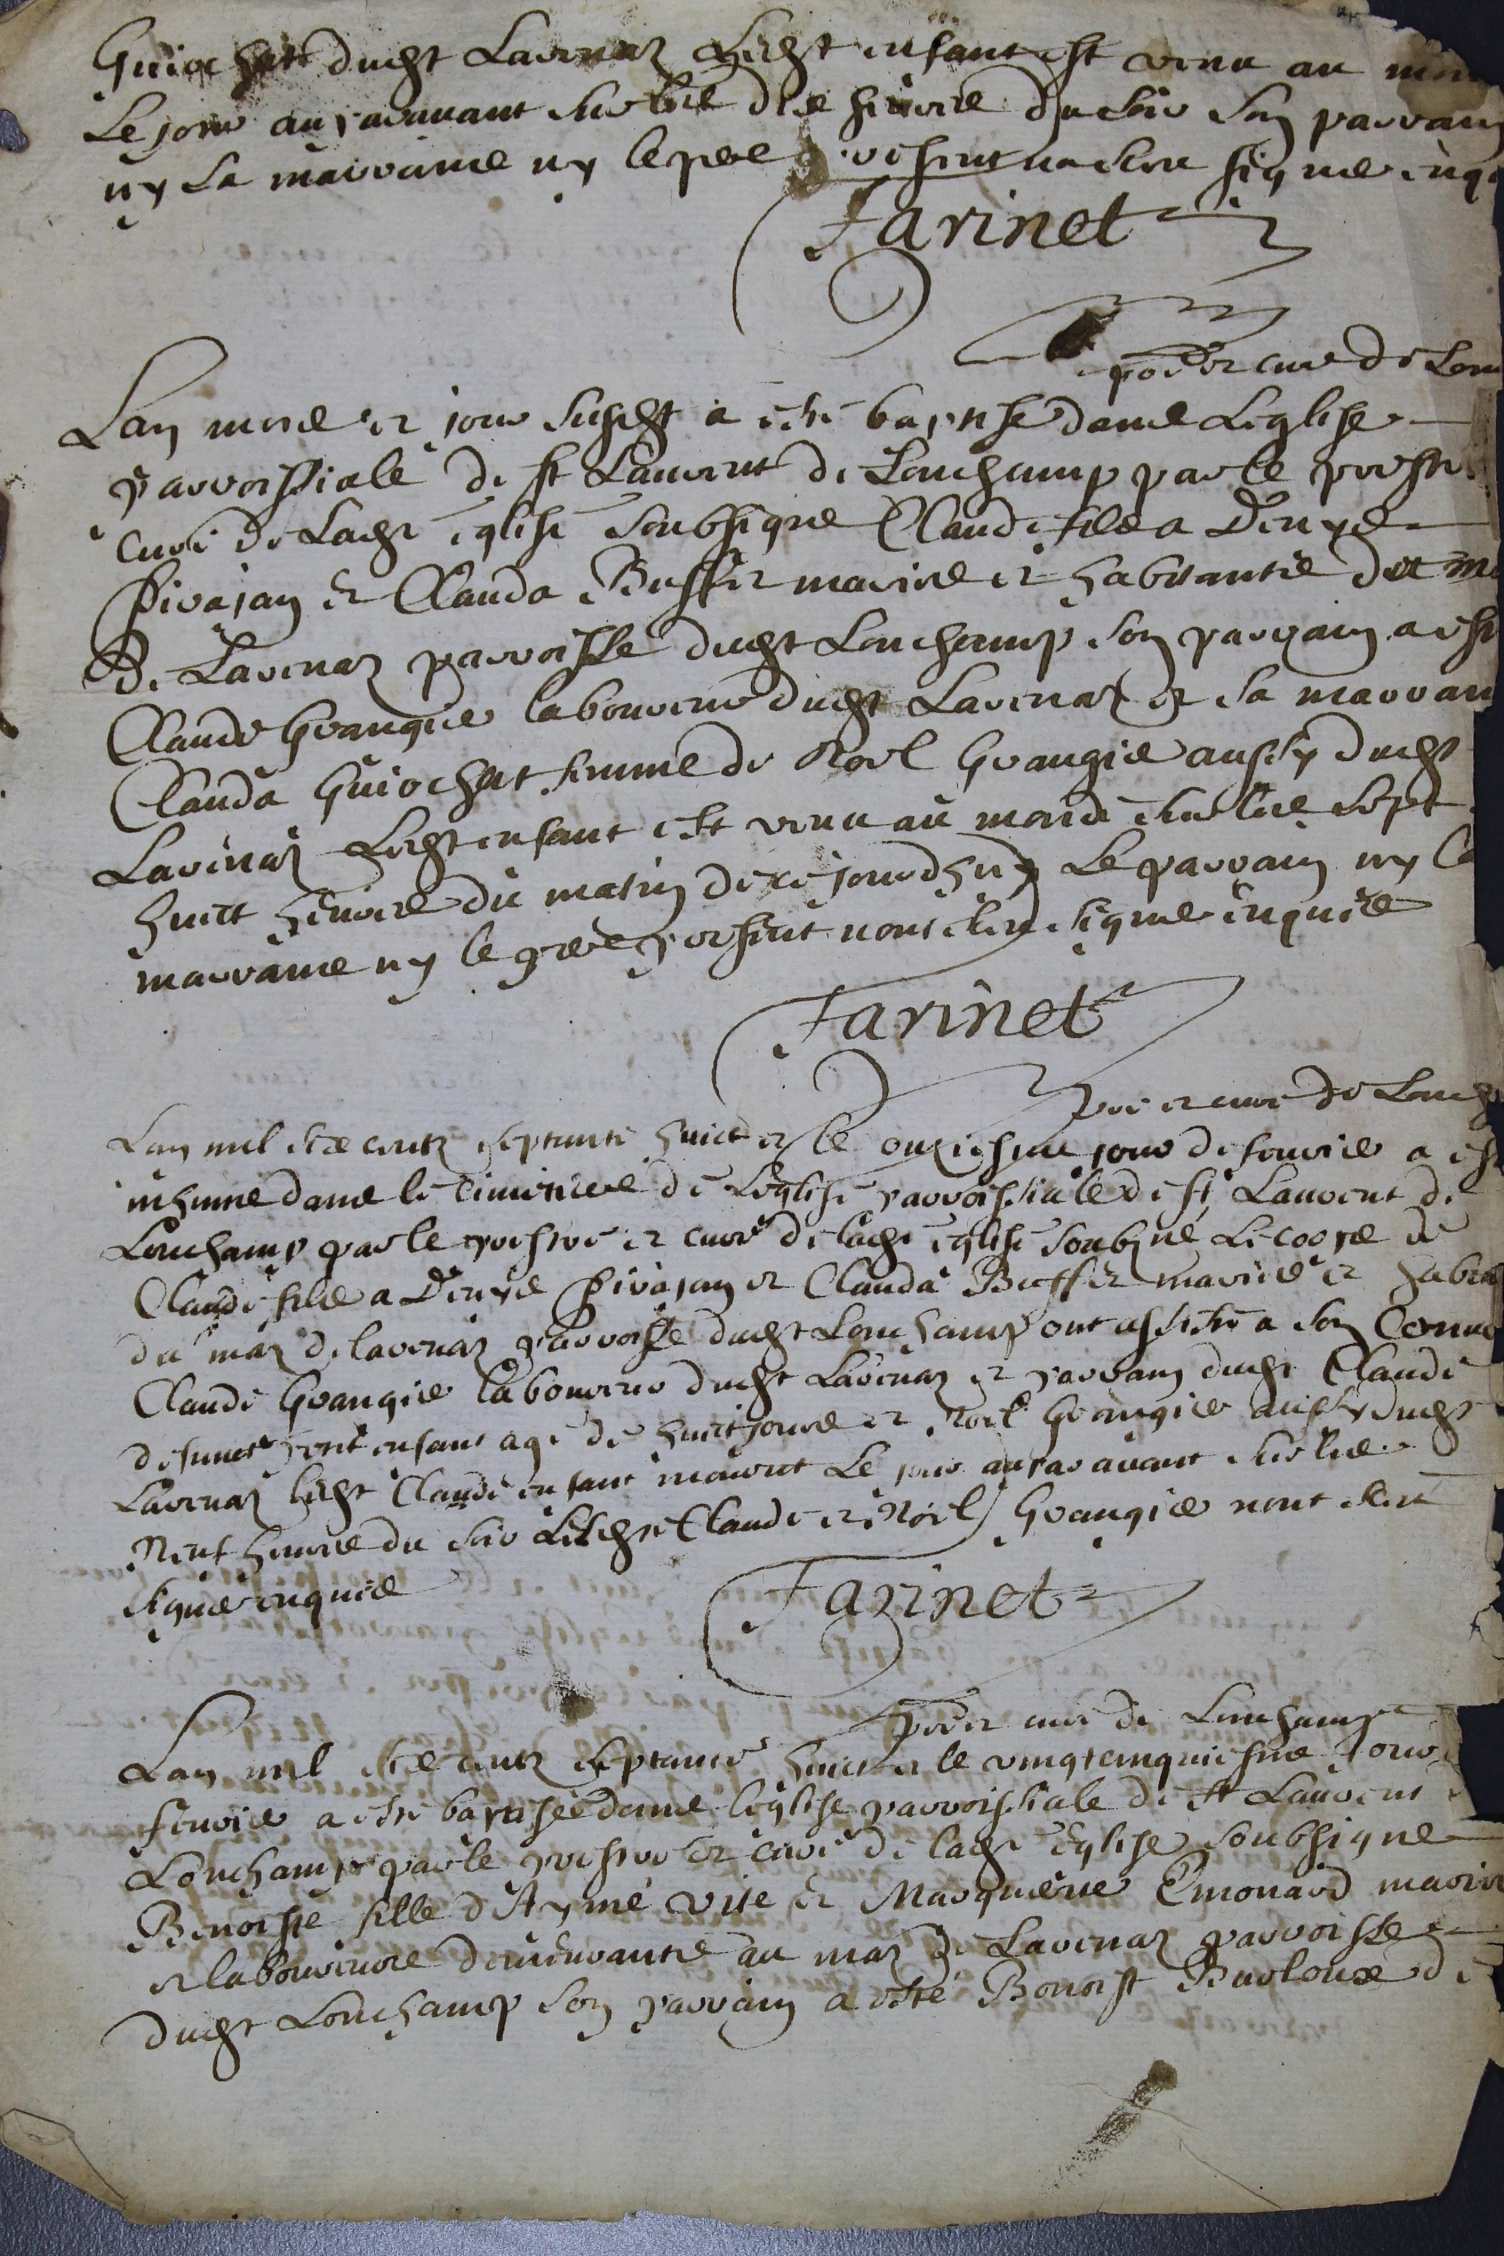 Guiochat dudt Lavenaz Ledt enfant est venu au mon
Le jour auparavant sur les dix heures du soir son parrain
ny La marraine ny le pere present na sceu signer enq
Farinet
pbre et cure de Lon
Lan mois et jour susdt a esté baptisé dans Leglise
parroissiale de st Laurent de Lonchamp par le prestre
curé de Ladte eglise soubsigne Claude fils a Denys
Pivajan et Clauda Buffet maries et habitants du ma
De Lavenaz parroisse dudt Lonchamp son parrain a est
Claude Grangier laboureur dudt Lavenaz et sa marrain
Clauda Guiochat femme de Noel Grangier aussy dudt
Lavenaz Ledt enfant est venu au monde sur les sept
huict heures du matin de ce jourdhuy Le parrain ny La
marraine ny le pere present nont sceu signer enquis
Farinet
pbre et cure de Lonch
Lan mil six centz septante huict et le onziesme jour de fevrier a est
inhumé dans le cimitiere de Leglise parroissiale de st Laurent de
Lonchamp par le prestre et curé de ladte eglise soubsigné Le corps de
Claude fils a Denys Pivajan et Clauda Buffet maries et habita
du maz de lavenaz parroisse dudt Lonchamp ont assisté a son Convo
Claude Grangier laboureur dudt Lavenaz et parrain dudt Claude
defunct petit enfant agé de huict jours et Noel Grangier aussy dudt
Lavenaz ledt Claude enfant mourut Le jour auparavant sur les
Neuf heures du soir Lesdts Claude et Noel Grangier nont sceu
signer enquis
Farinet
pbre et curé de Lonchamp
Lan mil six centz septante huict et le vingtcinquiesme Jour
fevrier a esté baptisée dans leglise parroissiale de st Laurent
Lonchamp par le prestre et curé de ladte Eglise soubsigne
Benoiste fille d'Aymé vite et Marguerite Emonard maries
et laboureurs demeurants au maz de Lavenaz parroisse
dudt Lonchamp son parrain a esté Benoist Burloux de